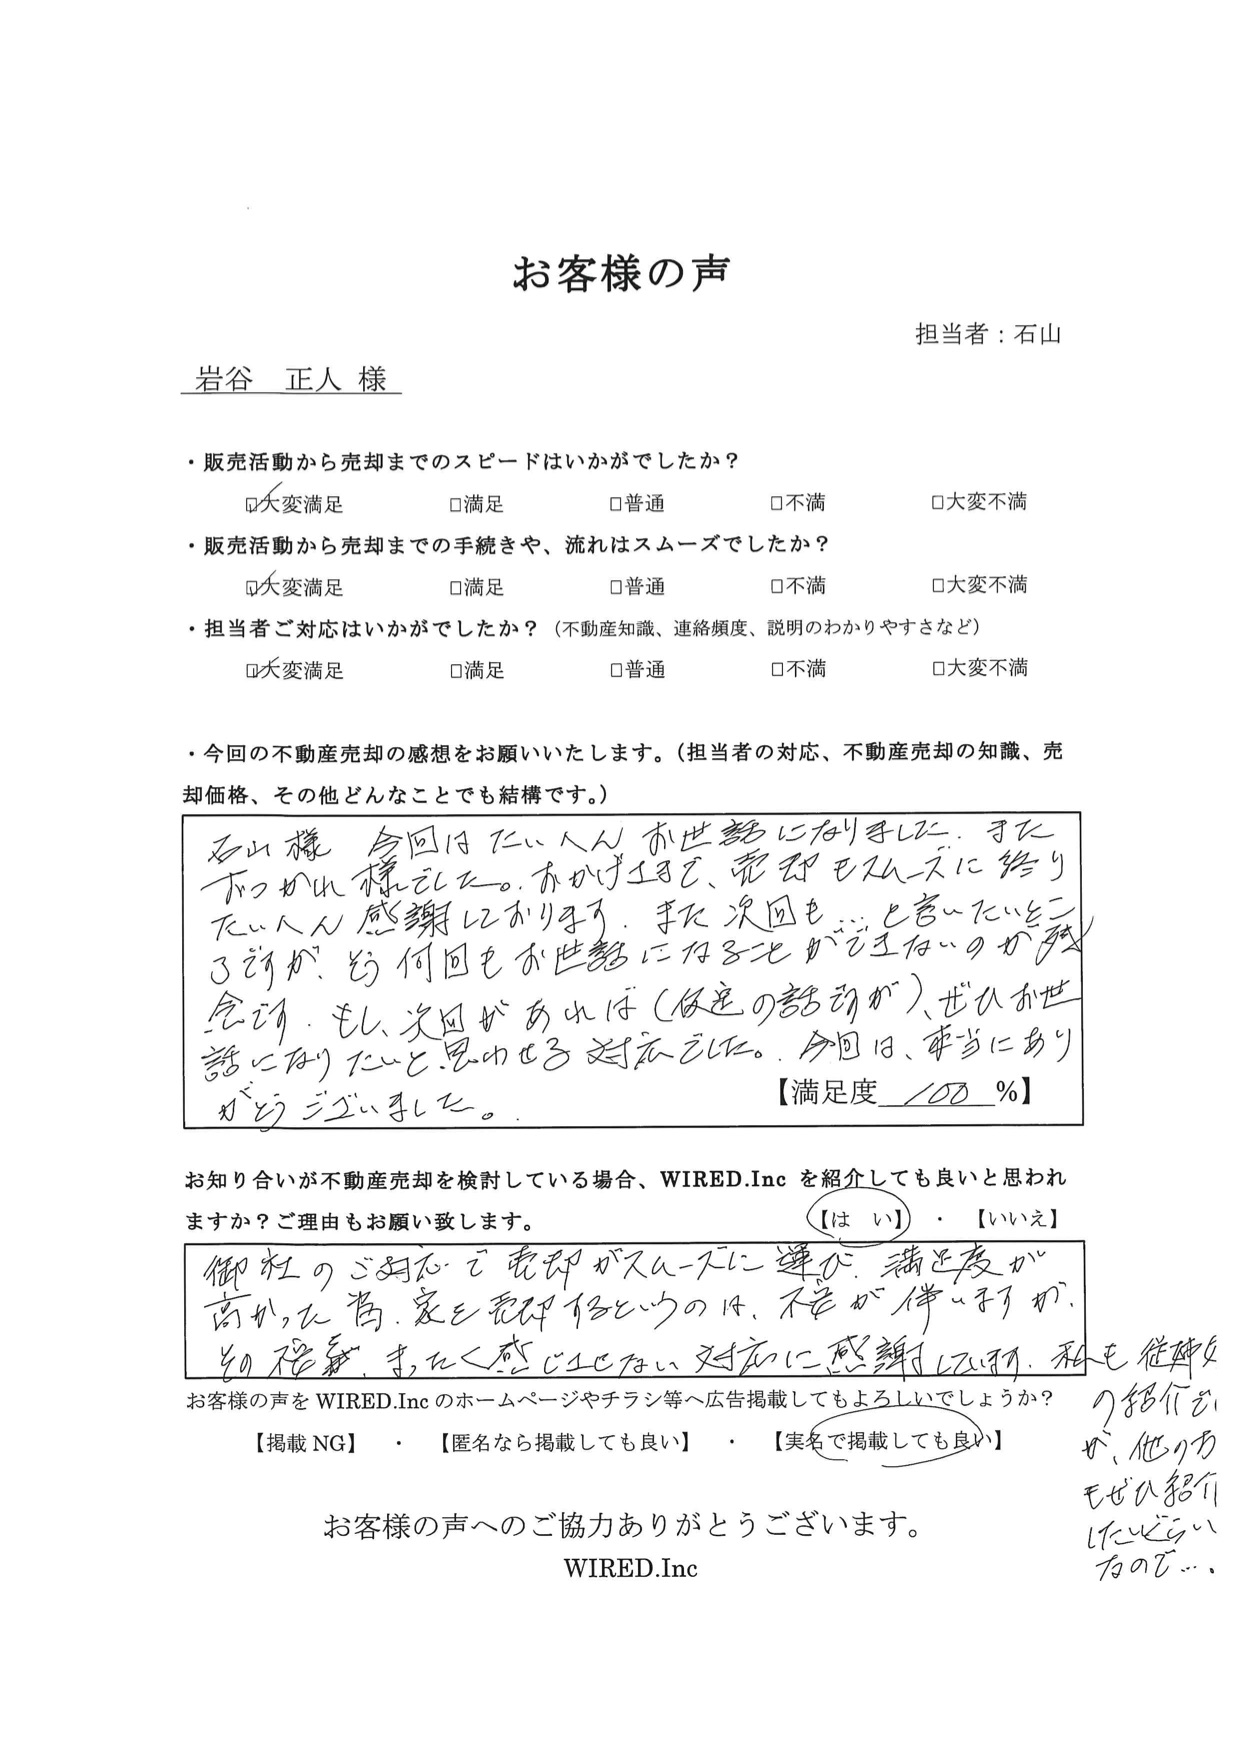 お客様の声
担当者：石山
岩谷　正人 様
・販売活動から売却までのスピードはいかがでしたか？
☑大変満足 □満足 □普通 □不満 □大変不満
・販売活動から売却までの手続きや、流れはスムーズでしたか？
☑大変満足 □満足 □普通 □不満 □大変不満
・担当者ご対応はいかがでしたか？（不動産知識、連絡頻度、説明のわかりやすさなど）
☑大変満足 □満足 □普通 □不満 □大変不満
・今回の不動産売却の感想をお願いいたします。（担当者の対応、不動産売却の知識、売
却価格、その他どんなことでも結構です。）
石山様　今回はたいへんお世話になりました。また
おつかれ様でした。おかげさまで、売却もスムーズに終り
たいへん感謝しております。また次回も…と言いたいとこ
ろですが、そう何回もお世話になることができないのが残
念です。もし、次回があれば（仮定の話ですが）、ぜひお世
話になりたいと思わせる対応でした。今回は、本当にあり
がとうございました。
【満足度 100 %】
お知り合いが不動産売却を検討している場合、WIRED.Inc を紹介しても良いと思われ
ますか？ご理由もお願い致します。 【は　い】 ・ 【いいえ】
御社のご対応で売却がスムーズに運び、満足度が
高かった為。家を売却するというのは、不安が伴いますが、
その 、まったく感じさせない対応に感謝しています。私も従姉女
の紹介で
が、他の方
もぜひ紹介
したいぐらい
なので…。
お客様の声を WIRED.Inc のホームページやチラシ等へ広告掲載してもよろしいでしょうか？
【掲載 NG】 ・ 【匿名なら掲載しても良い】 ・ 【実名で掲載しても良い】
お客様の声へのご協力ありがとうございます。
WIRED.Inc